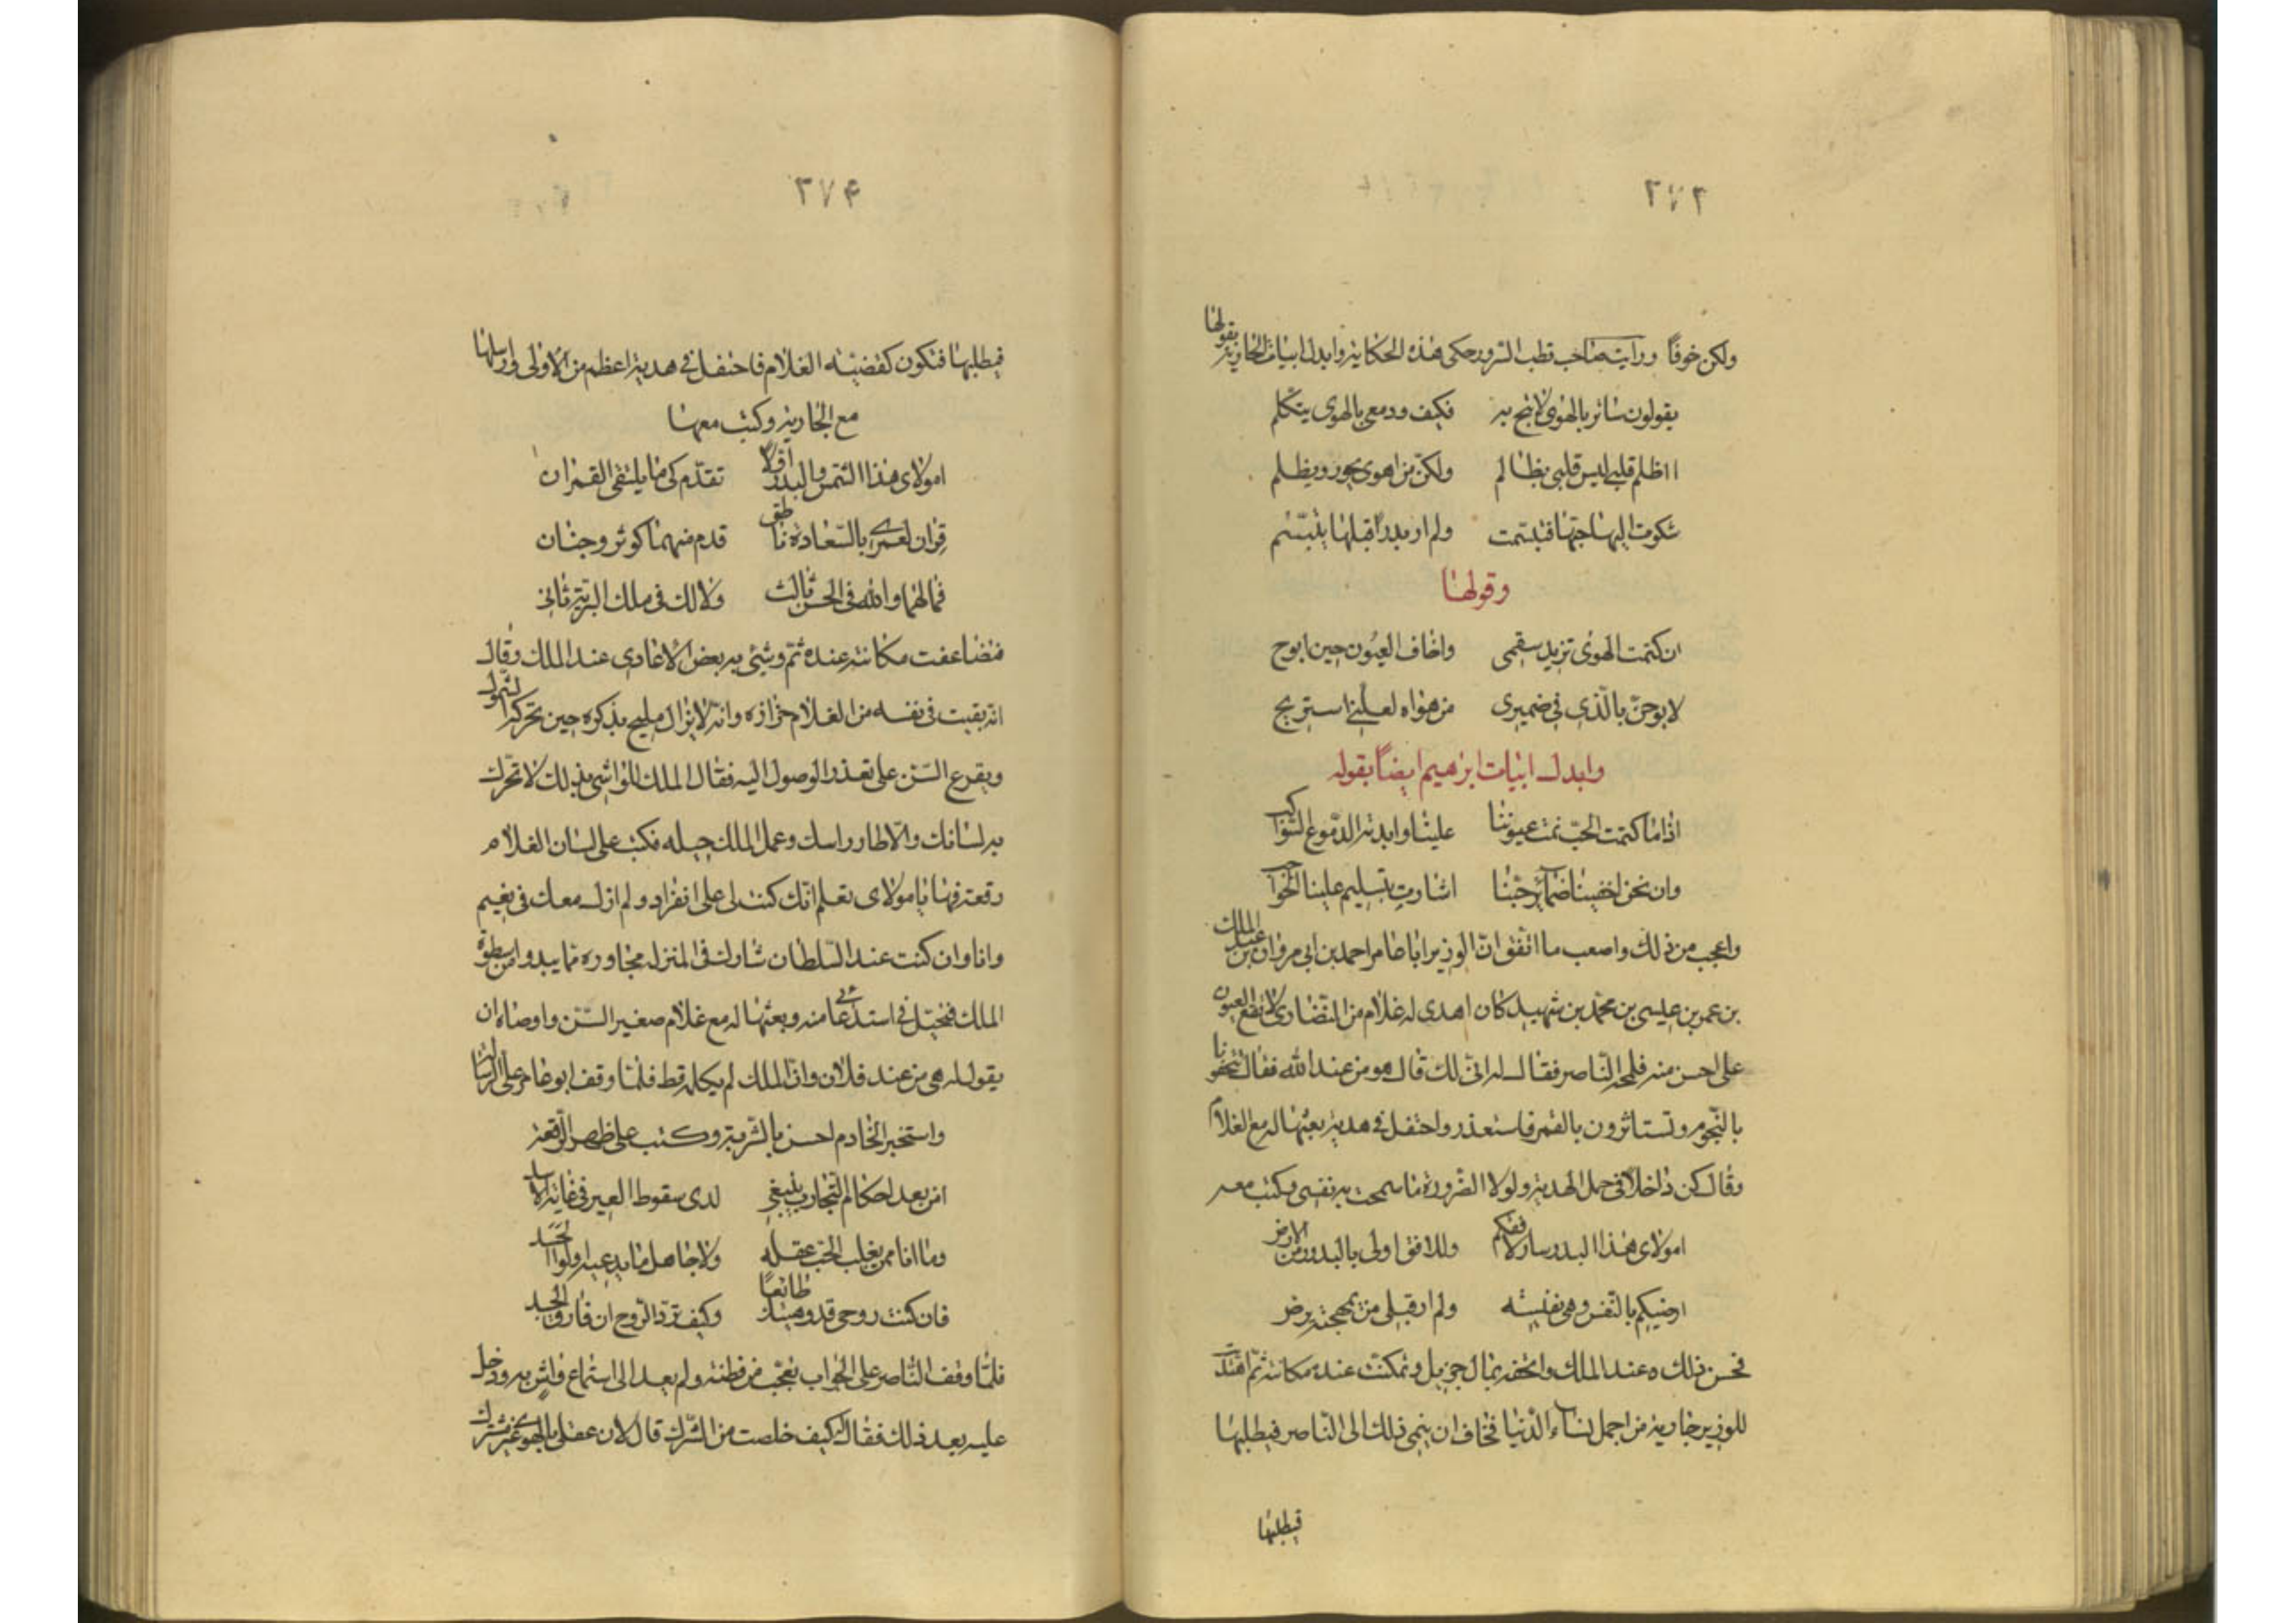 ٢٧٢
ولكن خوفًا ورايت صاحب قطب السرور حكى هذه الحكاية وابدل ابيات الجارية بقولها
يقولون ساتر بالهوى لا تبح به فكيف ودمعي بالهوى يتكلم
ااظلم قلبي ليس قلبي بظالم ولكن من اهوى يجور ويظلم
شكوت اليها حبها فتبسمت ولم ار بدرًا قبلها يتبسم
وقولها
ان كتمت الهوى تزيد سقمى واخاف العيون حين ابوح
لابوحن بالذي في ضميرى من هواه لعلني استريح
وابدل ابيات ابرهيم ايضًا بقوله
اذا ما كتمت الحب نمت عيوننا علينا وابدته الدموع السواكب
وان نحن اخفينا ضمائر حبنا اشارت بتسليم علينا الحواجب
واعجب من ذلك واصعب ما اتفق ان الوزير ابا عامر احمد بن ابي مروان عبد الملك بن
بن عمر بن عيسى بن محمد بن شهيد كان اهدى له غلام من النصارى لا تقع العيون
على احسن منه فلمحه الناصر فقال له انى لك قال هو من عند الله فقال تتحفونا
بالنجوم وتستاثرون بالقمر فاستعذر واحتفل في هدية بعثها له مع الغلام
وقال كن داخلا في حمل الهدية ولولا الضرورة ما سمحت به نفسى وكتب معه
امولاى هذا البدر سار لافقكم وللافق اولى بالبدور من الارض
ارضيكم بالنفس وهى نفيسه ولم ار قبلى من بمهجته يرضى
فحسن ذلك عند الملك واتحفه بمال جزيل وتمكنت عنده مكانته ثم اهديت
للوزير جارية من اجمل نساء الدنيا فخاف ان ينمى ذلك الى الناصر فيطلبها
فيطلبها
٢٧۴
فيطلبها فتكون كقضيه الغلام فاحتفل في هدية اعظم من الاولى وارسلها
مع الجارية وكتب معها
امولاى هذا الشمس والبدر اولا تقدم كى ما يلتقى القمران
قران لعمرى بالسعادة ناطق قدم منهما كوثر وجنان
فما لهما والله فى الحسن ثالث ولا لك فى ملك البرية ثانى
فتضاعفت مكانته عنده ثم وشى به بعض الاعادى عند الملك وقال
انه بقيت فى نفسه من الغلام حزازه وانه لا يزال يلهج بذكره حين تحركه الشمول
ويقرع السن على تعذر الوصول اليه فقال الملك للواشى بذلك لا تحرك
به لسانك والا طار راسك وعمل الملك حيله فكتب على لسان الغلام
رقعة فيها يا مولاى تعلم انك كنت لى على انفراد ولم ازل معك فى نعيم
وانا وان كنت عند السلطان شاركنى فى المنزله محاوره ما يبدو من سطوة
الملك فتحيل في استدعائي منه وبعثها له مع غلام صغير السن واوصاه ان
يقول له هى من عند فلان وان الملك لم يكلمه قط فلما وقف ابو عامر على الرسالة
واستخبر الخادم احسن بالشربة وكتب على ظهر الرقعة
امن بعد احكام التجارب ينبغى لدى سقوط العير فى غابة الاسد
وما انا ممن يغلب الحب عقله ولا جاهل ما يدعيه اولوا الحسد
فان كنت روحى قد وهبتك طائعًا وكيف ترد الروح ان فارق الجسد
فلما وقف الناصر على الجواب تعجب من فطنته ولم يعد الى استماع واش به ودخل
عليه بعد ذلك فقال له كيف خلصت من الشرك قال لان عقلى بالهوى غير مشترك